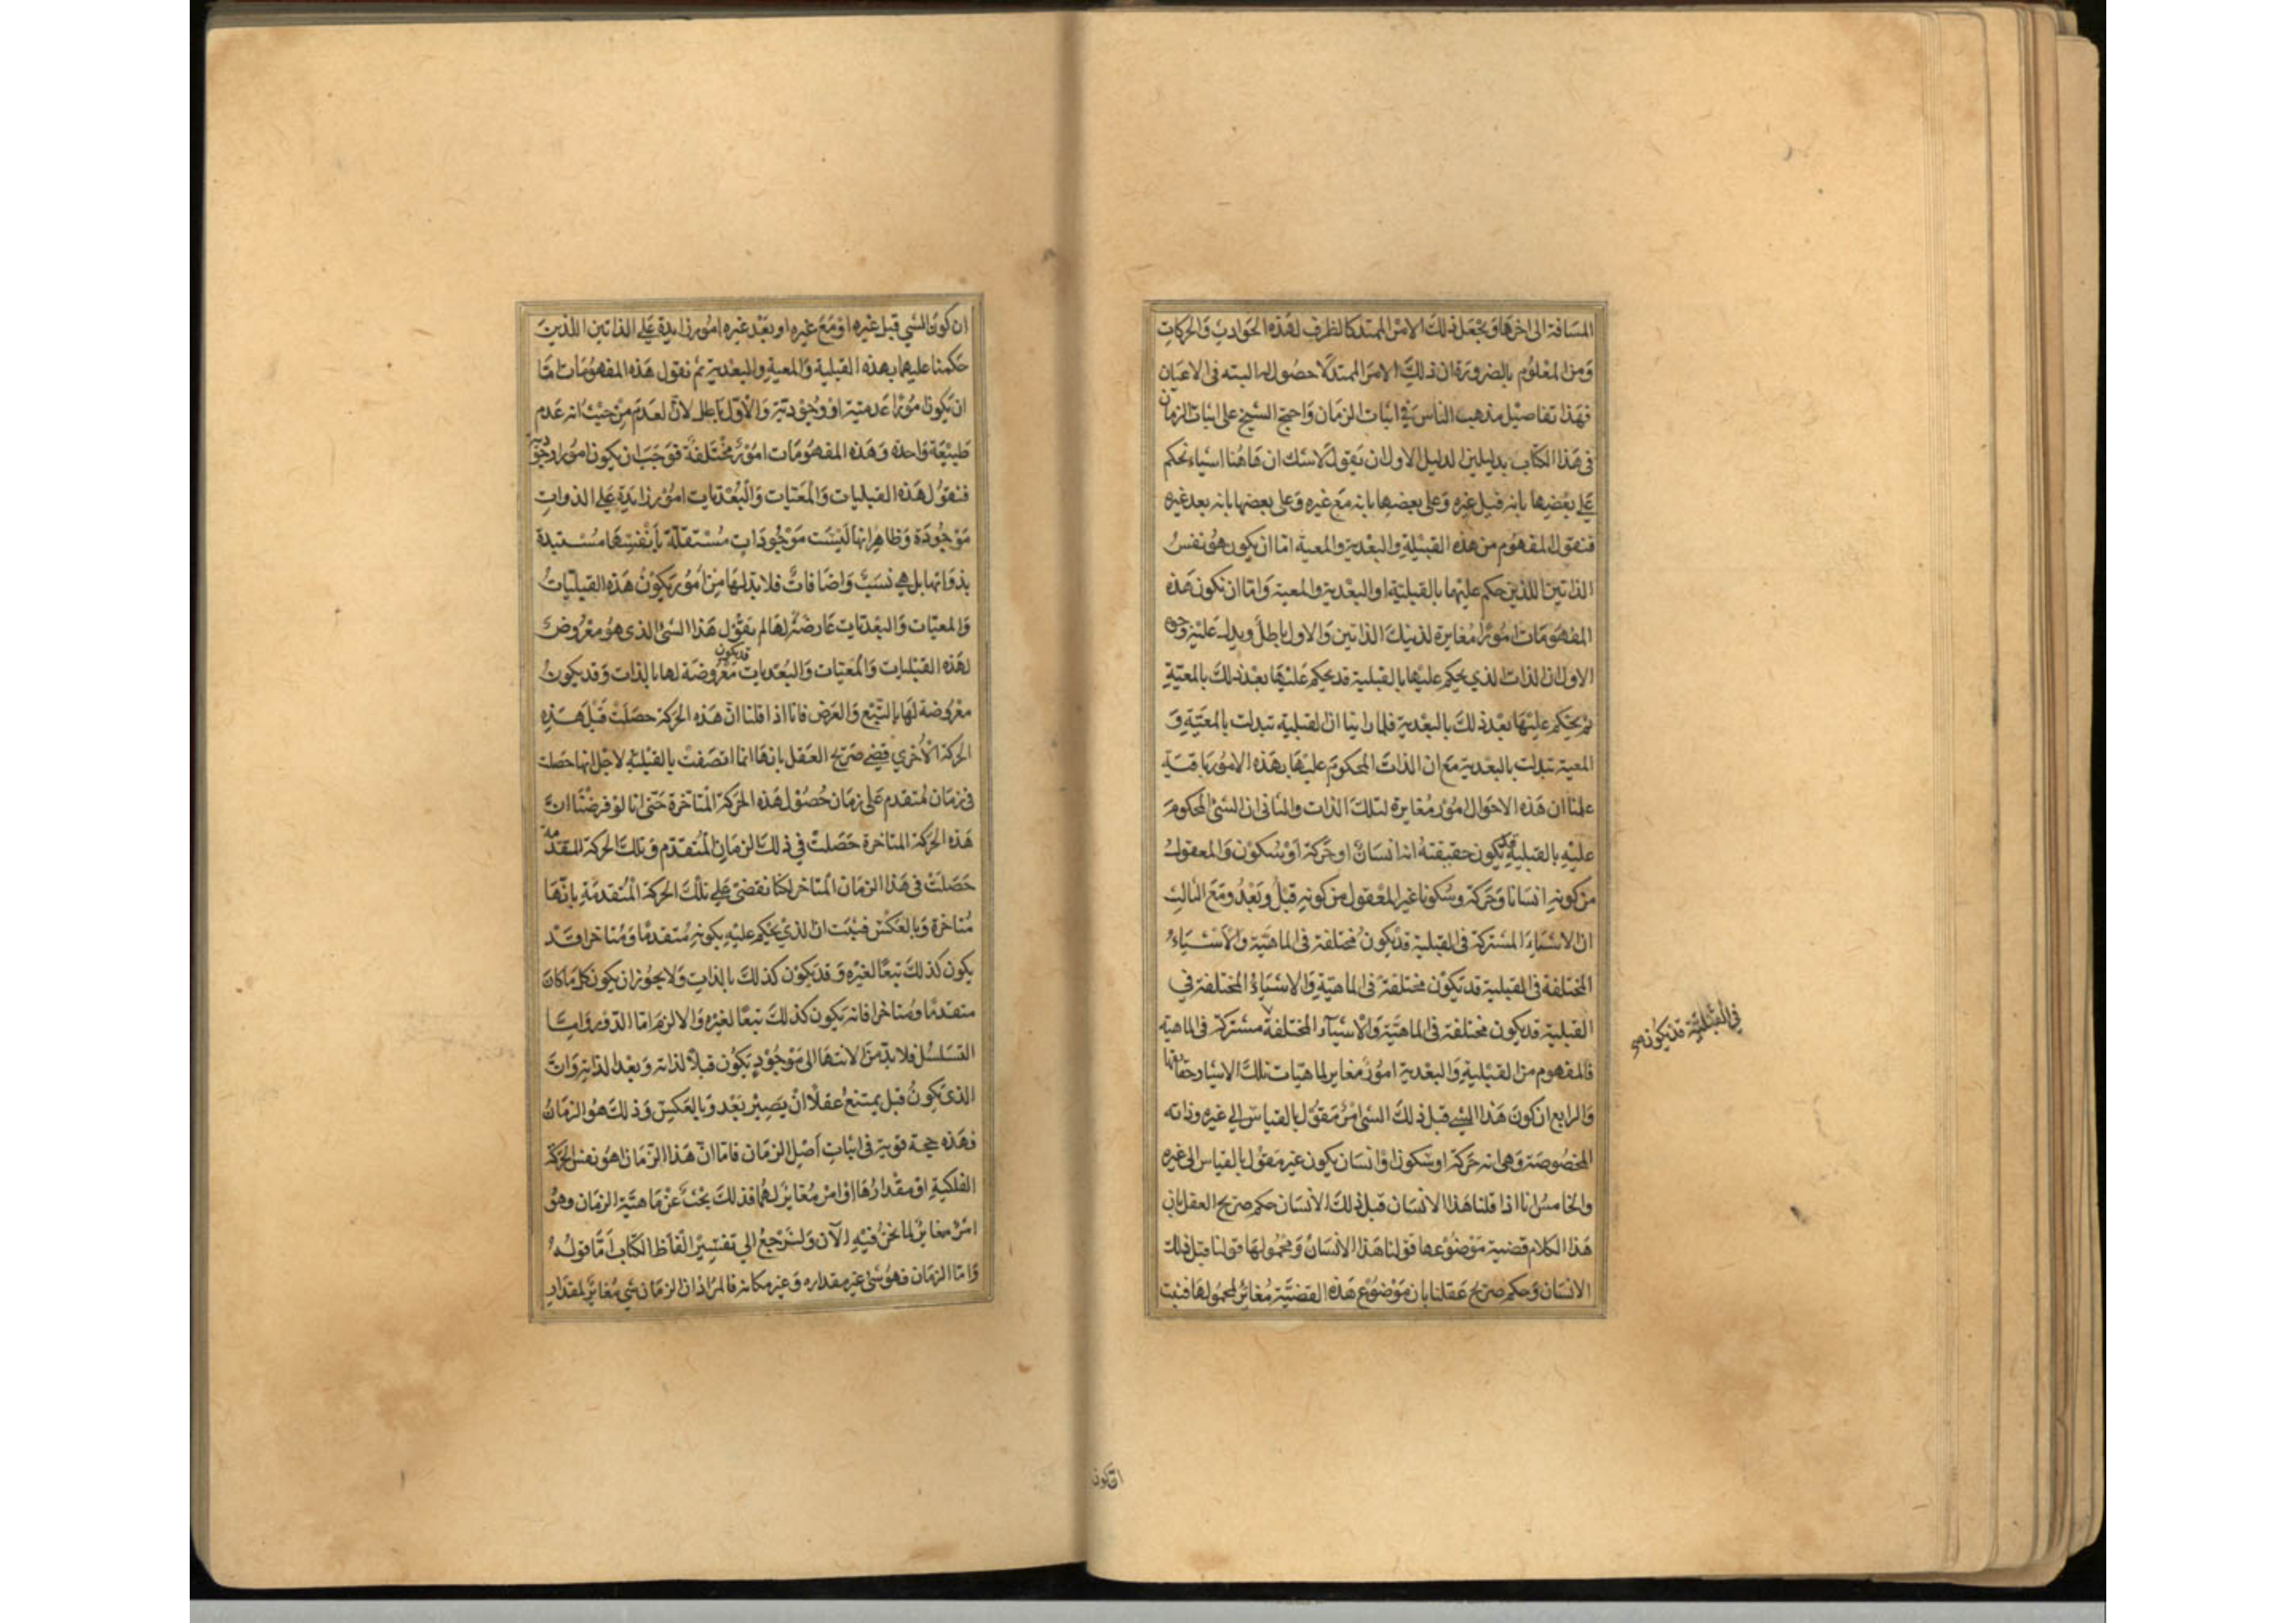 المسافة الى اخرها ويجعل ذلك الامر الممتد كالظرف لهذه الحوادث والحركات
ومن المعلوم بالضرورة ان ذلك الامر الممتد لا حصول له البته فى الاعيان
فهذا تفاصيل مذهب الناس في اثبات الزمان واحتج الشيخ على اثبات الزمان
فى هذا الكتاب بدليلين الدليل الاول ان نقول لا شك ان هاهنا اشياء نحكم
على بعضها بانه قبل غيره وعلى بعضها بانه مع غيره وعلى بعضها بانه بعد غيره
فنقول المفهوم من هذه القبلية والبعدية والمعية اما ان يكون هو نفس
الذاتين اللذين حكم عليهما بالقبلية او البعدية والمعية واما ان تكون هذه
المفهومات امورًا مغايرة لذينك الذاتين والاول باطل ويدل عليه وجوه
الاول ان الذات الذي يحكم عليها بالقبلية قد يحكم عليها بعد ذلك بالمعيّةِ
ثم يحكم عليها بعد ذلك بالبعدية فلما راينا ان القبلية تبدلت بالمعيّة و
المعية تبدلت بالبعدية مع ان الذات المحكوم عليها بهذه الامور باقية
علمنا ان هذه الاحوال امور مغايرة لتلك الذات والثانى ان الشئ المحكوم
عليه بالقبلية قد يكون حقيقته انه انسان او حركة او سكون والمعقول
من كونه انسانا وحركة وسكونا غير المعقول من كونه قبل وبعد ومع الثالث
ان الاشياء المشتركة فى القبلية قد يكون مختلفة فى الماهية والاشياء
المختلفة فى القبلية قد تكون مختلفة فى الماهية والاشياء المختلفة في
القبلية قد يكون مختلفة فى الماهية والاشياء المختلفة مشتركة فى الماهية
فالمفهوم من القبلية والبعدية امور مغاير لماهيات تلك الاشياء وحقائقها
والرابع ان كون هذا الشي قبل ذلك الشئ امر مقول بالقياس الي غيره وذاته
المخصوصة وهى انه حركة او سكون او انسان يكون غير مقول بالقياس الى غيره
والخامس انا اذا قلنا هذا الانسان قبل ذلك الانسان حكم صريح العقل بان
هذا الكلام قضية موضوعها قولنا هذا الانسان ومحمولها قولنا قبل ذلك
الانسان وحكم صريح عقلنا بان موضوع هذه القضية مغائر لمحمولها فثبت
في القبلية قد يكون
ان كون
ان كون الشي قبل غيره او مع غيره او بعد غيره امور زايدة على الذاتين اللذين
حكمنا عليهما بهذه القبلية والمعية والبعدية ثم نقول هذه المفهومات اما
ان يكون امورًا عدمية او وجودية والاول باطل لان العدم من حيث انه عدم
طبيعة واحدة وهذه المفهومات امور مختلفة فوجب ان يكون امورا وجودية
فنقول هذه القبليات والمعيات والبعديات امور زايدة على الذوات
موجودة وظاهر انها ليست موجودات مستقلة بانفسها مستبدة
بذواتها بل هي نسب واضافات فلا بد لها من امور يكون هذه القبليات
والمعيات والبعديات عارضة لها ثم نقول هذا الشئ الذى هو معروض
لهذه القبليات والمعيات والبعديات قد يكون معروضة لها بالذات وقد يكون
معروضة لها بالتبع والعرض فانا اذا قلنا ان هذه الحركة حصلت قبل هذه
الحركة الاخري قضى صريح العقل بانها انما اتصفت بالقبلية لاجل انها حصلت
فى زمان متقدم على زمان حصول هذه الحركة المتاخرة حتى انا لو فرضنا ان
هذه الحركة المتاخرة حصلت في ذلك الزمان المتقدم وتلك الحركة المتقدمة
حصلت فى هذا الزمان المتاخر لكنا نقضى على تلك الحركة المتقدمة بانها
متاخرة وبالعكس فثبت ان الذي يحكم عليه بكونه متقدما ومتاخرا قد
يكون كذلك تبعًا لغيره وقد يكون كذلك بالذات ولا يجوز ان يكون كل ما كان
متقدما ومتاخرا فانه يكون كذلك تبعًا لغيره والا لزم اما الدور واما
التسلسل فلا بد من الانتهاء الى موجود يكون قبلًا لذاته وبعدا لذاته وان
الذى يكون قبل يمتنع عقلًا ان يصير بعد وبالعكس وذلك هو الزمان
فهذه حجة قوية فى اثبات اصل الزمان فاما ان هذا الزمان هو نفس الحركة
الفلكية او مقدارها او امر مغاير لهما فذلك بحث عن ماهية الزمان وهو
امر مغاير لما نحن فيه الآن ولنرجع الى تفسير الفاظ الكتاب اما قوله
واما الزمان فهو شئ غير مقداره وغير مكانه فالمراد ان الزمان شي مغاير لمقدار